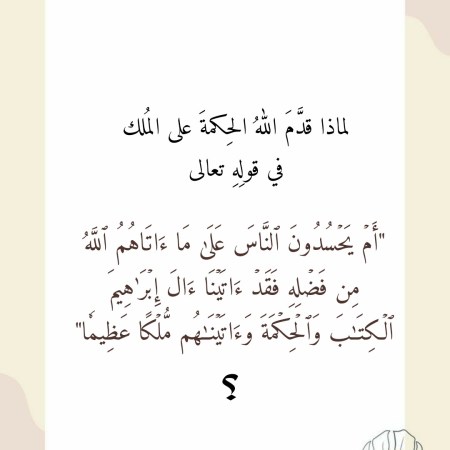 لماذا قدَّمَ اللهُ الحِكمةَ على المُلك
في قولِهِ تعالى
"أَمۡ يَحۡسُدُونَ ٱلنَّاسَ عَلَىٰ مَا ءَاتَاهُمُ ٱللَّهُ
مِن فَضۡلِهِ فَقَدۡ ءَاتَيۡنَا ءَالَ إِبۡرَٰهِيمَ
ٱلۡكِتَٰبَ وَٱلۡحِكۡمَةَ وَءَاتَيۡنَٰهُم مُّلۡكًا عَظِيمٗا"
؟